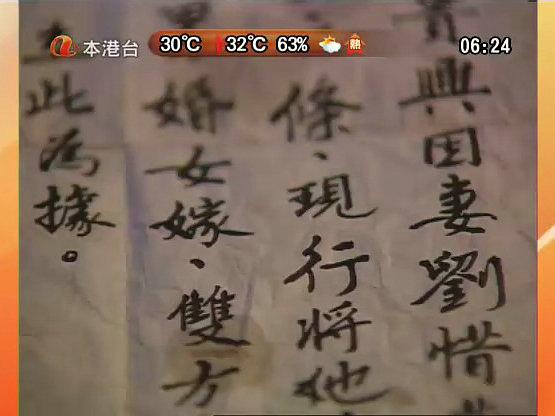 本港台 30℃ 32℃ 63% 熱 06:24
興因妻劉惜
條、現行將他
婚女嫁、雙方
此為據。